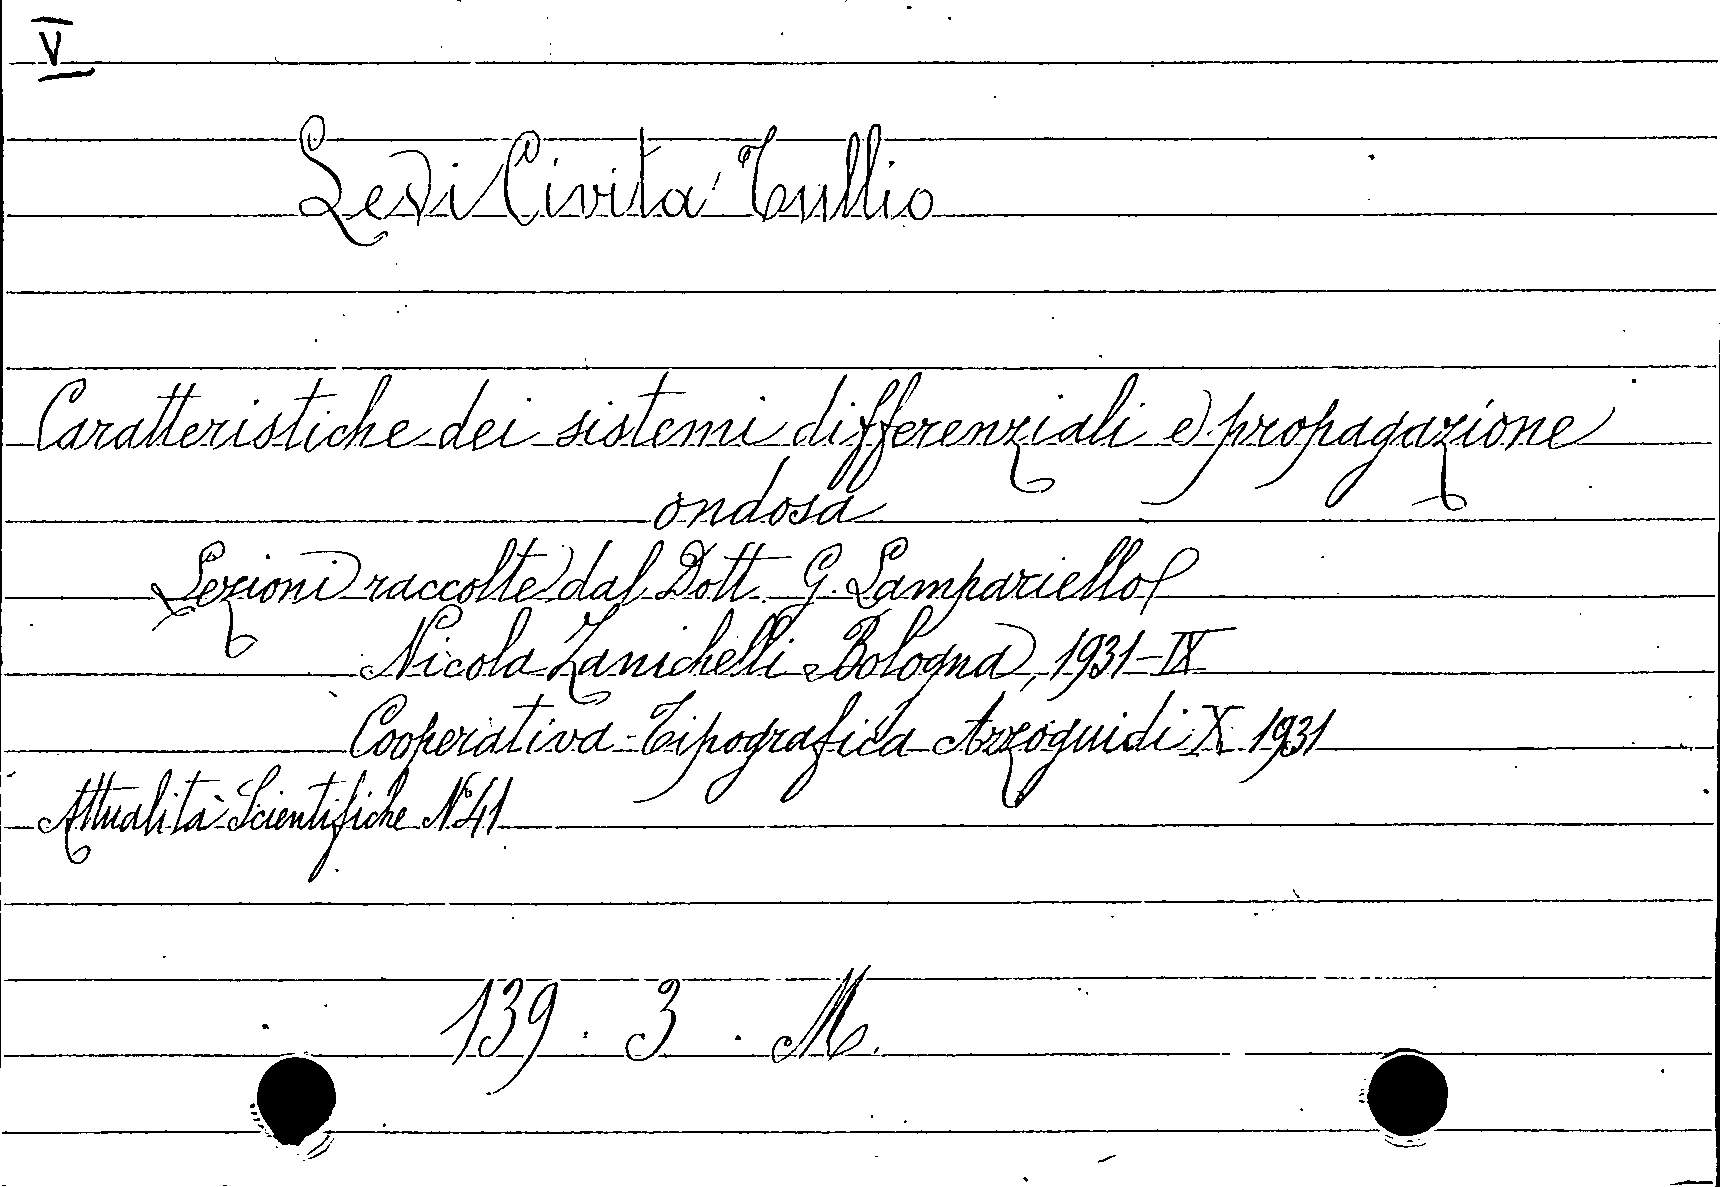 V
Levi Civita' Tullio
Caratteristiche dei sistemi differenziali e propagazione
ondosa
Lezioni raccolte dal Dott. G. Lampariello
Nicola Zanichelli Bologna, 1931-IX
Cooperativa Tipografica Azzoguidi X 1931
Attualità Scientifiche N° 41
139. 3. M.